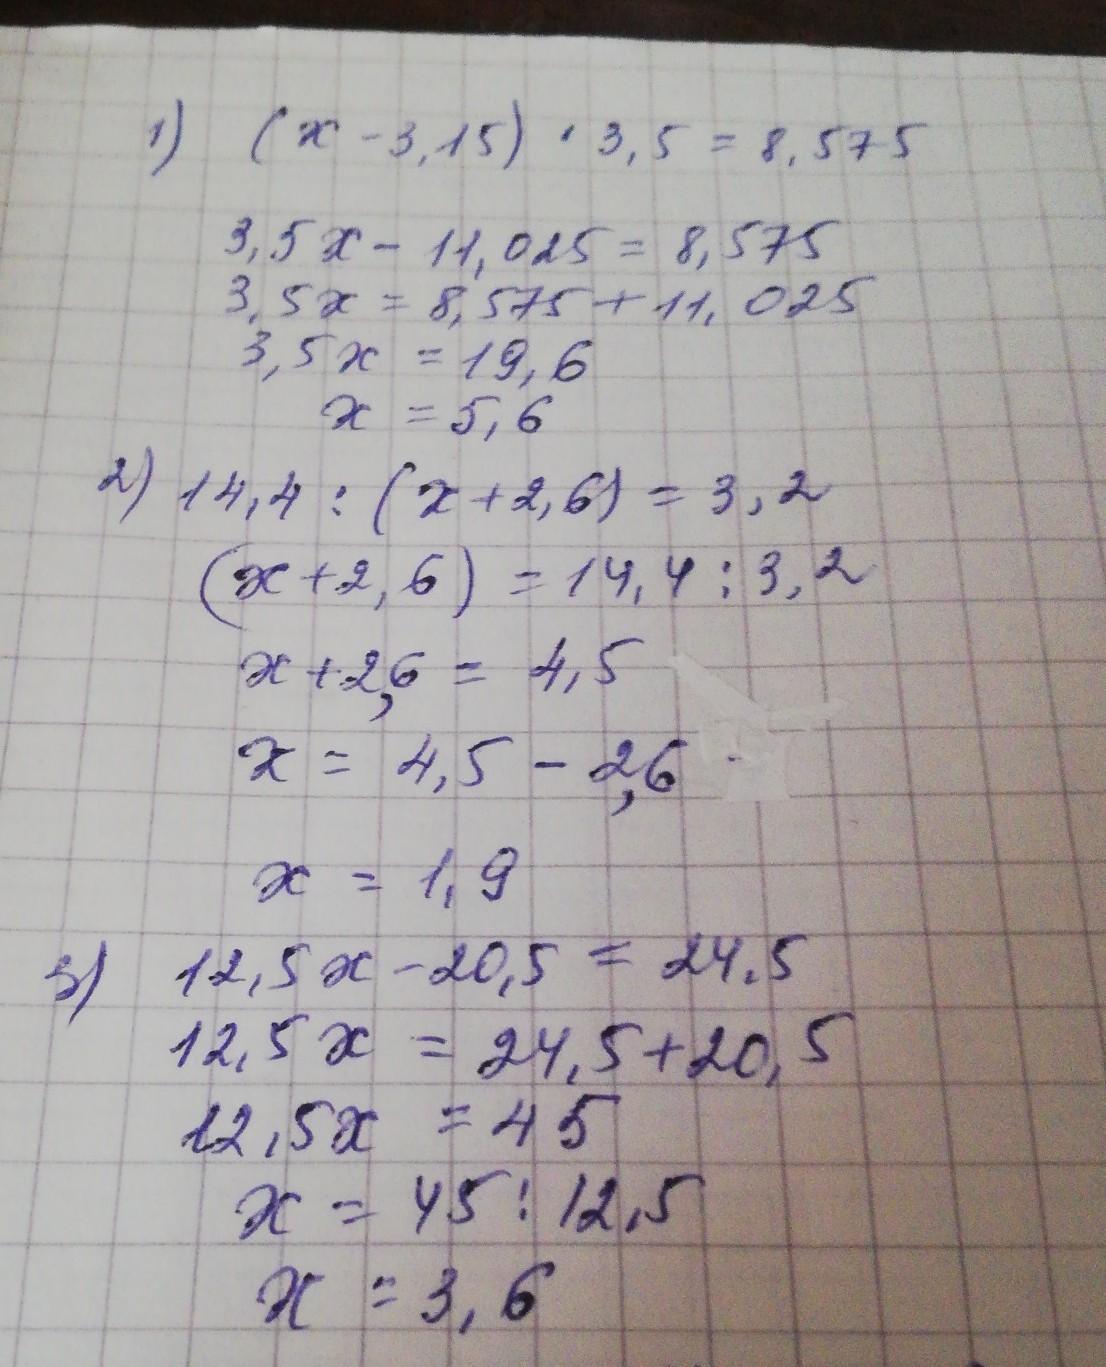 1) (x - 3,15) · 3,5 = 8,575
3,5x - 11,025 = 8,575
3,5x = 8,575 + 11,025
3,5x = 19,6
x = 5,6
2) 14,4 : (x + 2,6) = 3,2
(x + 2,6) = 14,4 : 3,2
x + 2,6 = 4,5
x = 4,5 - 2,6
x = 1,9
3) 12,5x - 20,5 = 24,5
12,5x = 24,5 + 20,5
12,5x = 45
x = 45 : 12,5
x = 3,6